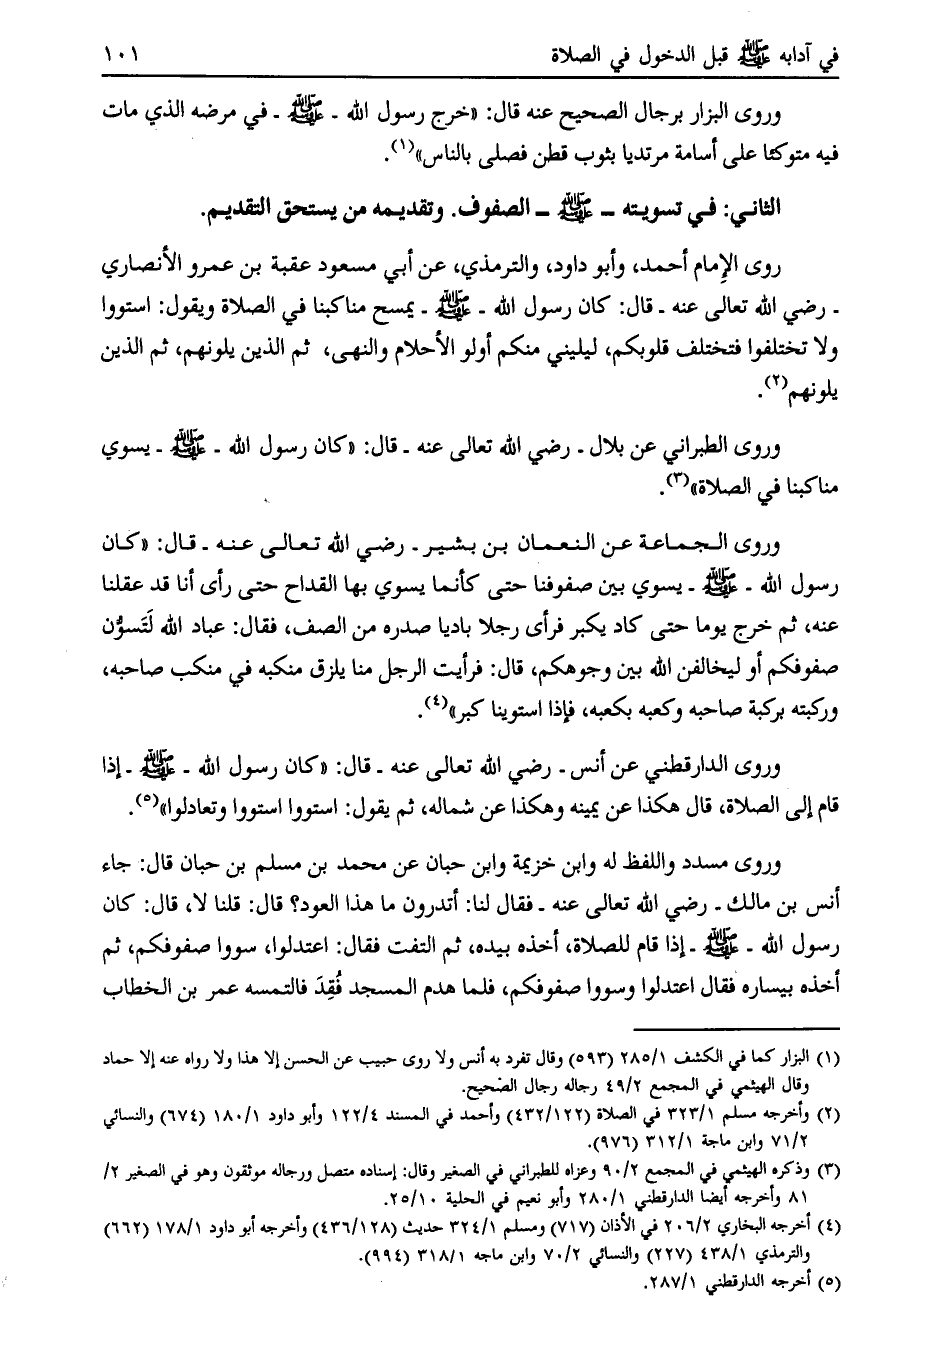 في آدابه ﷺ قبل الدخول في الصلاة ١٠١
وروى البزار برجال الصحيح عنه قال: «خرج رسول الله ـ ﷺ ـ في مرضه الذي مات
فيه متوكئا على أسامة مرتديا بثوب قطن فصلى بالناس»(١).
الثاني: في تسويته ـ ﷺ ـ الصفوف. وتقديمه من يستحق التقديم.
روى الإِمام أحمد، وأبو داود، والترمذي، عن أبي مسعود عقبة بن عمرو الأنصاري
ـ رضي الله تعالى عنه ـ قال: كان رسول الله ـ ﷺ ـ يمسح مناكبنا في الصلاة ويقول: استووا
ولا تختلفوا فتختلف قلوبكم، ليليني منكم أولو الأحلام والنهى، ثم الذين يلونهم، ثم الذين
يلونهم(٢).
وروى الطبراني عن بلال ـ رضي الله تعالى عنه ـ قال: «كان رسول الله ـ ﷺ ـ يسوي
مناكبنا في الصلاة»(٣).
وروى الجماعة عن النعمان بن بشير ـ رضي الله تعالى عنه ـ قال: «كان
رسول الله ـ ﷺ ـ يسوي بين صفوفنا حتى كأنما يسوي بها القداح حتى رأى أنا قد عقلنا
عنه، ثم خرج يوما حتى كاد يكبر فرأى رجلا باديا صدره من الصف، فقال: عباد الله لَتَسوُّن
صفوفكم أو ليخالفن الله بين وجوهكم، قال: فرأيت الرجل منا يلزق منكبه في منكب صاحبه،
وركبته بركبة صاحبه وكعبه بكعبه، فإذا استوينا كبر»(٤).
وروى الدارقطني عن أنس ـ رضي الله تعالى عنه ـ قال: «كان رسول الله ـ ﷺ ـ إذا
قام إلى الصلاة، قال هكذا عن يمينه وهكذا عن شماله، ثم يقول: استووا استووا وتعادلوا»(٥).
وروى مسدد واللفظ له وابن خزيمة وابن حبان عن محمد بن مسلم بن حبان قال: جاء
أنس بن مالك ـ رضي الله تعالى عنه ـ فقال لنا: أتدرون ما هذا العود؟ قال: قلنا لا، قال: كان
رسول الله ـ ﷺ ـ إذا قام للصلاة، أخذه بيده، ثم التفت فقال: اعتدلوا، سووا صفوفكم، ثم
أخذه بيساره فقال اعتدلوا وسووا صفوفكم، فلما هدم المسجد فُقِدَ فالتمسه عمر بن الخطاب
(١) البزار كما في الكشف ٢٨٥/١ (٥٩٣) وقال تفرد به أنس ولا روى حبيب عن الحسن إلا هذا ولا رواه عنه إلا حماد
وقال الهيثمي في المجمع ٤٩/٢ رجاله رجال الصحيح.
(٢) وأخرجه مسلم ٣٢٣/١ في الصلاة (٤٣٢/١٢٢) وأحمد في المسند ١٢٢/٤ وأبو داود ١٨٠/١ (٦٧٤) والنسائي
٧١/٢ وابن ماجة ٣١٢/١ (٩٧٦).
(٣) وذكره الهيثمي في المجمع ٩٠/٢ وعزاه للطبراني في الصغير وقال: إسناده متصل ورجاله موثقون وهو في الصغير ٢/
٨١ وأخرجه أيضا الدارقطني ٢٨٠/١ وأبو نعيم في الحلية ٢٥/١٠.
(٤) أخرجه البخاري ٢٠٦/٢ في الأذان (٧١٧) ومسلم ٣٢٤/١ حديث (٤٣٦/١٢٨) وأخرجه أبو داود ١٧٨/١ (٦٦٢)
والترمذي ٤٣٨/١ (٢٢٧) والنسائي ٧٠/٢ وابن ماجه ٣١٨/١ (٩٩٤).
(٥) أخرجه الدارقطني ٢٨٧/١.